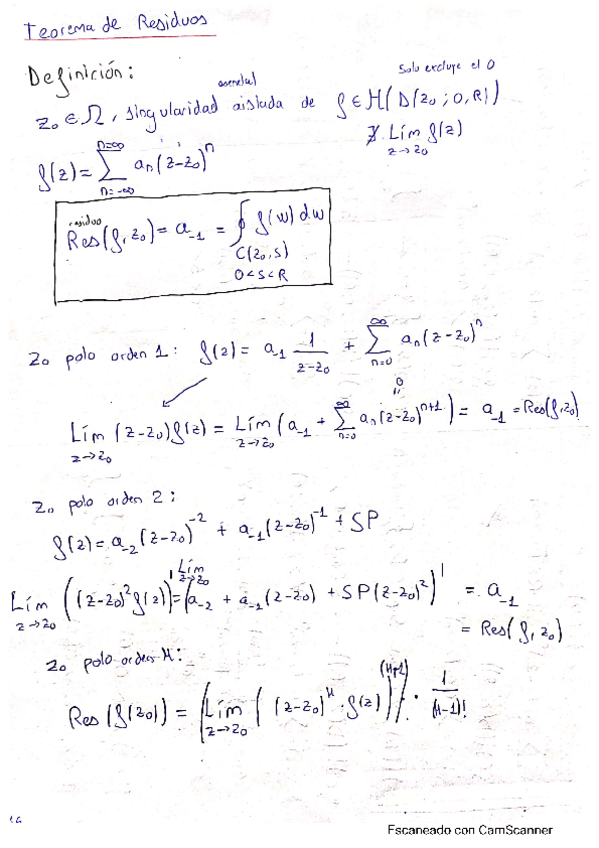 Teorema de Residuos
Definición:
esencial
Solo excluye el 0
z₀ ∈ Ω, singularidad aislada de f ∈ H(D(z₀; 0, R))
∄ Lím f(z)
z→z₀
f(z) = ∑_{n=-∞}^{n=∞} aₙ(z-z₀)ⁿ
residuo
Res(f, z₀) = a₋₁ = ∮ f(w) dw
C(z₀, s)
0<s<R
z₀ polo orden 1: f(z) = a₋₁ 1/(z-z₀) + ∑_{n=0}^{∞} aₙ(z-z₀)ⁿ
Lím_{z→z₀} (z-z₀)f(z) = Lím_{z→z₀} (a₋₁ + ∑_{n=0}^{∞} aₙ(z-z₀)ⁿ⁺¹) = a₋₁ = Res(f, z₀)
z₀ polo orden 2:
f(z) = a₋₂(z-z₀)⁻² + a₋₁(z-z₀)⁻¹ + SP
Lím_{z→z₀} ((z-z₀)²f(z))' = Lím_{z→z₀} (a₋₂ + a₋₁(z-z₀) + SP(z-z₀)²)' = a₋₁
= Res(f, z₀)
z₀ polo orden M:
Res(f(z₀)) = (Lím_{z→z₀} ((z-z₀)^M · f(z))^{(M-1)}) · 1/(M-1)!
Escaneado con CamScanner